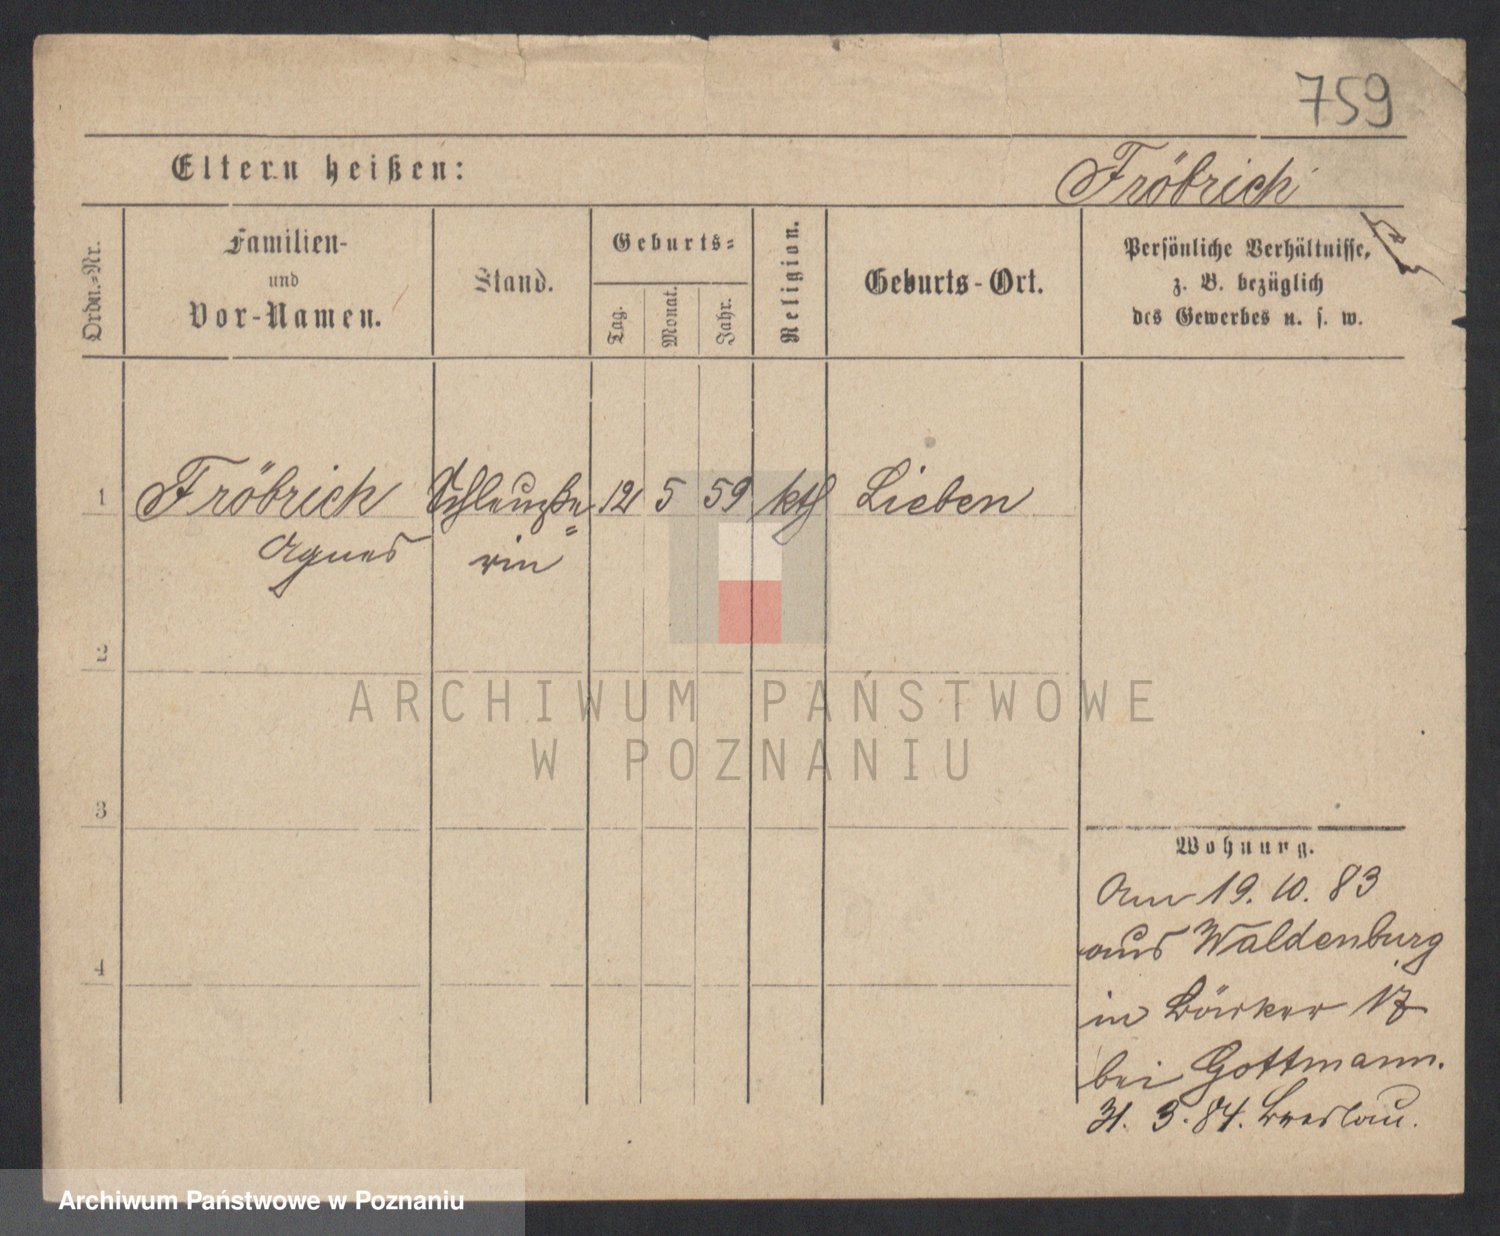 759
Eltern heißen:
Fröbrich
Ordn.=Nr.
Familien-
und
Vor-Namen.
Stand.
Geburts=
Tag.
Monat.
Jahr.
Religion.
Geburts-Ort.
Persönliche Verhältnisse,
z. B. bezüglich
des Gewerbes u. s. w.
1 Fröbrich 12 5 59 kth Lieben
Agnes rin
2
3
4
ARCHIWUM PAŃSTWOWE
W POZNANIU
Wohnung.
Am 19. 10. 83
aus Waldenburg
in 17
bei Gottmann.
31. 3. 84. Breslau.
Archiwum Państwowe w Poznaniu